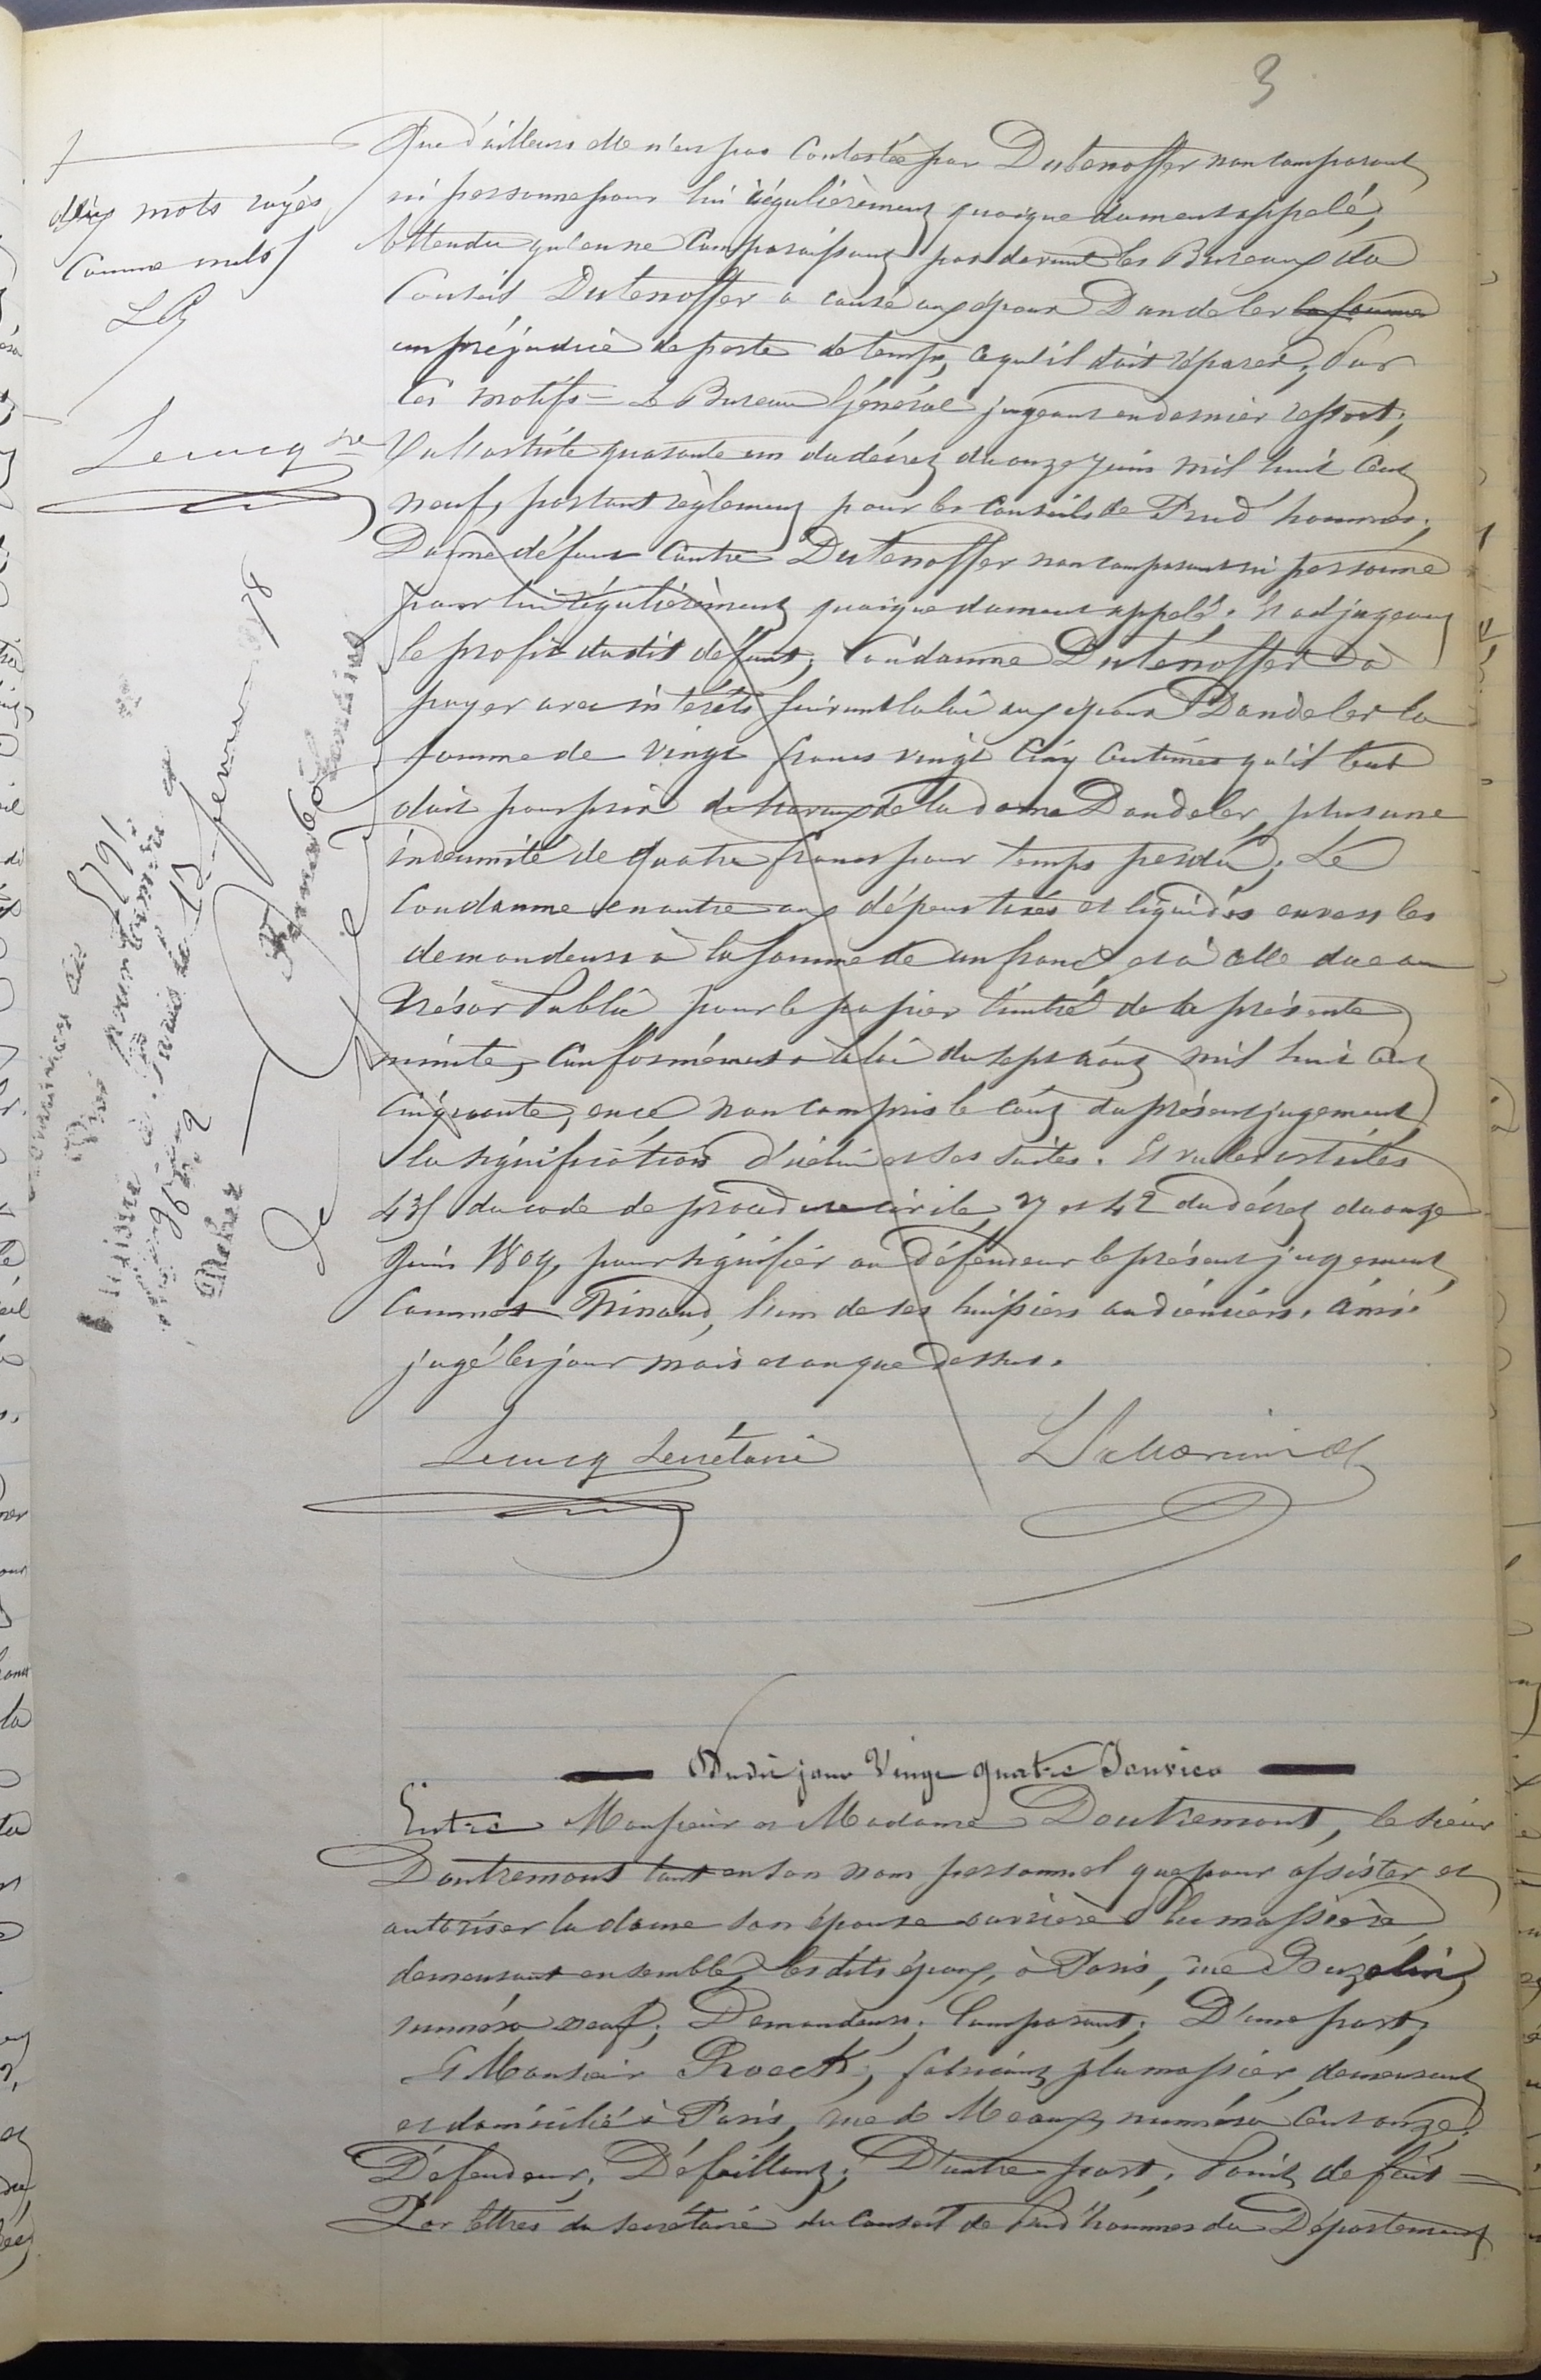 3
Que d'ailleurs elle n'est pas contestée par Dutenoffer non comparant
ni personne pour lui régulièrement quoique dument appelé;
Attendu qu'en ne comparaissant pas devant les Bureaux du
Conseil Dutenoffer a causé aux époux Dandeler la somme
un préjudice de perte de temps, ce qu'il doit réparer; Par
ces motifs = Le Bureau Général jugeant en dernier ressort;
Vu l'article quarante un du décret du onze juin mil huit cent
neuf, portant règlement pour les Conseils de Prud'hommes;
Donne défaut contre Dutenoffer non comparant ni personne
pour lui régulièrement quoique dument appelé. Et adjugeant
le profit dudit défaut; Condamne Dutenoffer à
payer avec intérêts suivant la loi aux époux Dandeler la
somme de vingt francs vingt cinq centimes qu'il leur
doit pour prix de travaux de la dame Dandeler, plus une
indemnité de quatre francs pour temps perdu; Le
Condamne en outre aux dépens taxés et liquidés envers les
demandeurs à la somme de un franc, et à celle due au
Trésor Public pour le papier timbré de la présente
minute, conformément à la loi du sept août mil huit cent
cinquante, en ce non compris le coût du présent jugement,
la signification d'icelui et ses suites. Et vu les articles
435 du code de procédure civile, 27 et 42 du décret du onze
Juin 1809, pour signifier au défendeur le présent jugement,
Commet Ninaud, l'un de ses huissiers audienciers. Ainsi
jugé les jour mois et an que dessus.
Lecucq Secrétaire
deux mots rayés
comme nuls
Lecucq sre
Enregistré à Paris le 13 février 78
Débet
Le
Dudit jour Vingt quatre Janvier
Entre Monsieur et Madame Doutremont, le sieur
Doutremont tant en son nom personnel que pour assister et
autoriser la dame son épouse ouvrière plumassière
demeurant ensemble, les dits époux, à Paris, rue Buzelin
numéro neuf; Demandeurs; Comparant; D'une part;
Et Monsieur Proeck, fabricant plumassier, demeurant
et domicilié à Paris, rue de Meaux, numéro cent onze;
Défendeur; Défaillant; D'autre part; Point de fait =
Par lettres du secrétaire du Conseil de Prud'hommes du Département